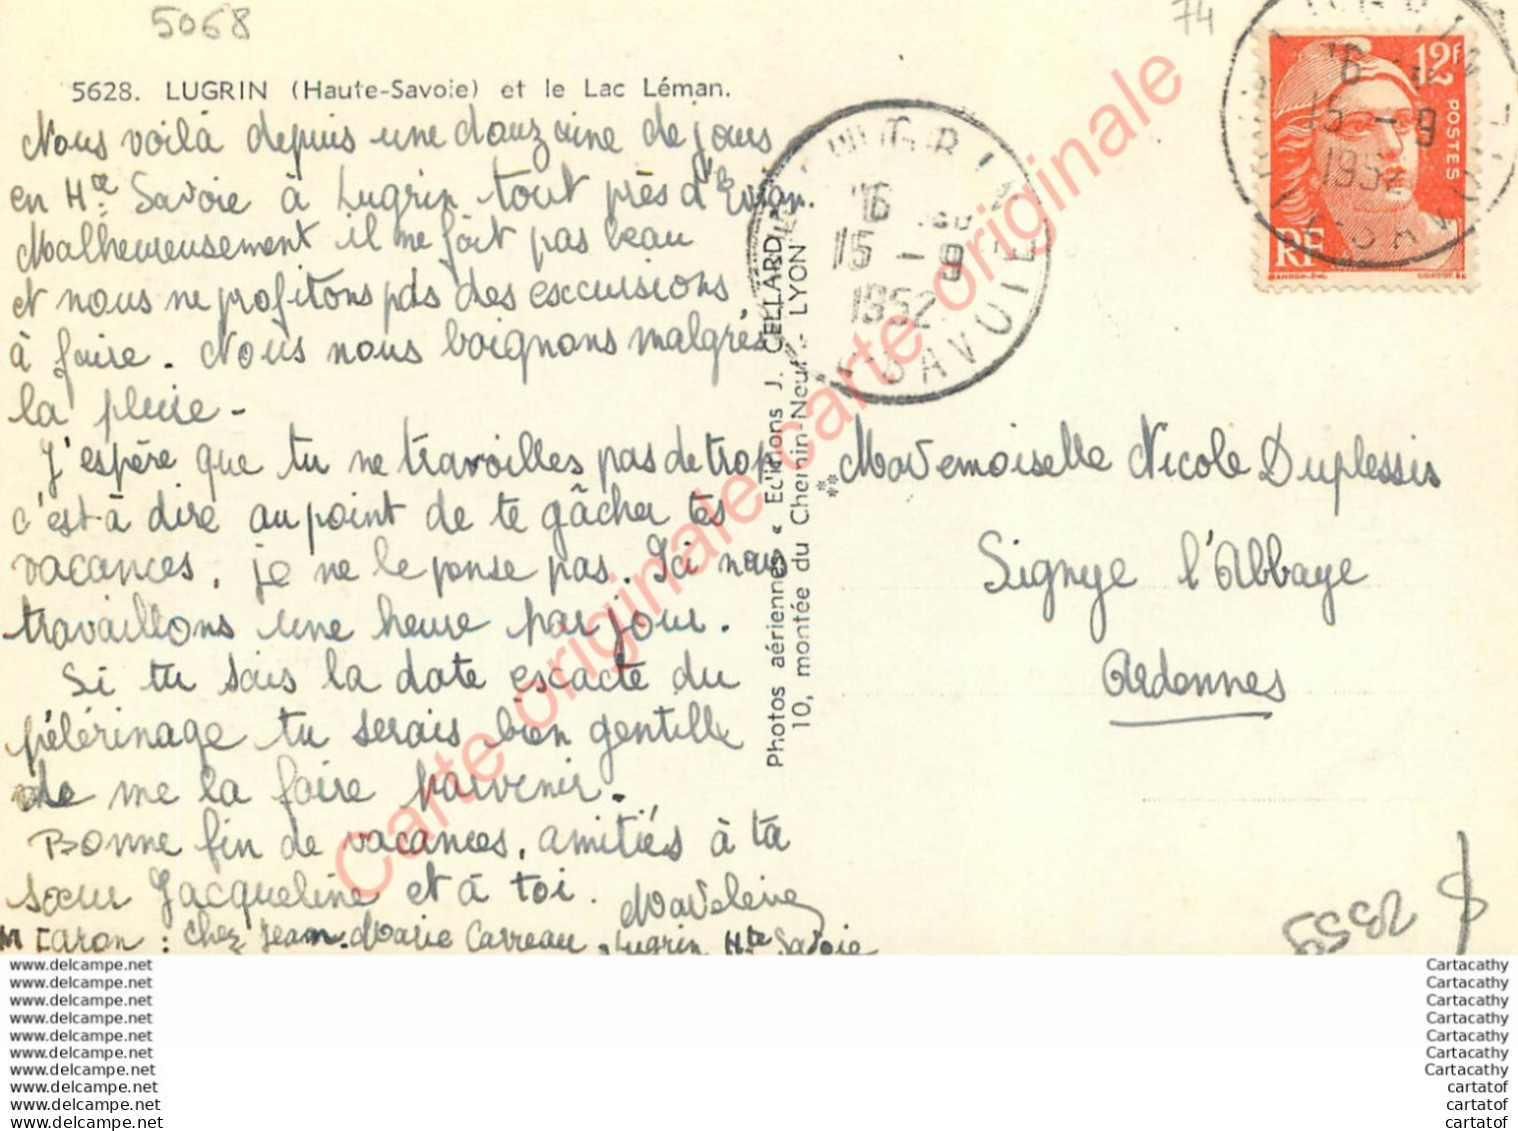 5068
74
5628. LUGRIN (Haute-Savoie) et le Lac Léman.
Nous voilà depuis une douzaine de jours
en Hte Savoie à Lugrin tout près d'Evian.
Malheureusement il ne fait pas beau
et nous ne profitons pas des excursions
à faire. Nous nous baignons malgrès
la pluie -
J'espère que tu ne travailles pas de trop
c'est-à dire au point de te gâcher tes
vacances, je ne le pense pas. Ici nous
travaillons une heure par jour.
Si tu sais la date exacte du
pélérinage tu serais bien gentille
de me la faire parvenir.
Bonne fin de vacances, amitiés à ta
sœur Jacqueline et à toi. Madeleine
M CARON : chez Jean-Marie Carreau - Lugrin Hte Savoie
Photos aériennes « Editions J. CELLARD »
10, montée du Chemin-Neuf - LYON
16
15 - 9
1952
SAVOIE
12F
POSTES
RF
GANDON.DEL.
16
15 - 9
1952
Mademoiselle Nicole Duplessis
Signye l'Abbaye
Ardennes
2359
Carte originale carte originale carte originale
www.delcampe.net
www.delcampe.net
www.delcampe.net
www.delcampe.net
www.delcampe.net
www.delcampe.net
www.delcampe.net
www.delcampe.net
www.delcampe.net
www.delcampe.net
Cartacathy
Cartacathy
Cartacathy
Cartacathy
Cartacathy
Cartacathy
Cartacathy
cartatof
cartatof
cartatof